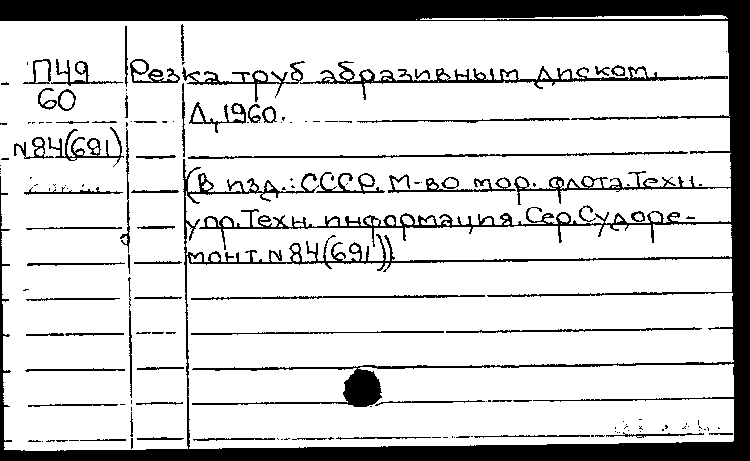 П49
60
N84(691)
Резка труб абразивным диском.
Л, 1960.
(В изд.: СССР. М-во мор. флота. Техн.
упр. Техн. информация. Сер. Судоре-
монт. N84(691))